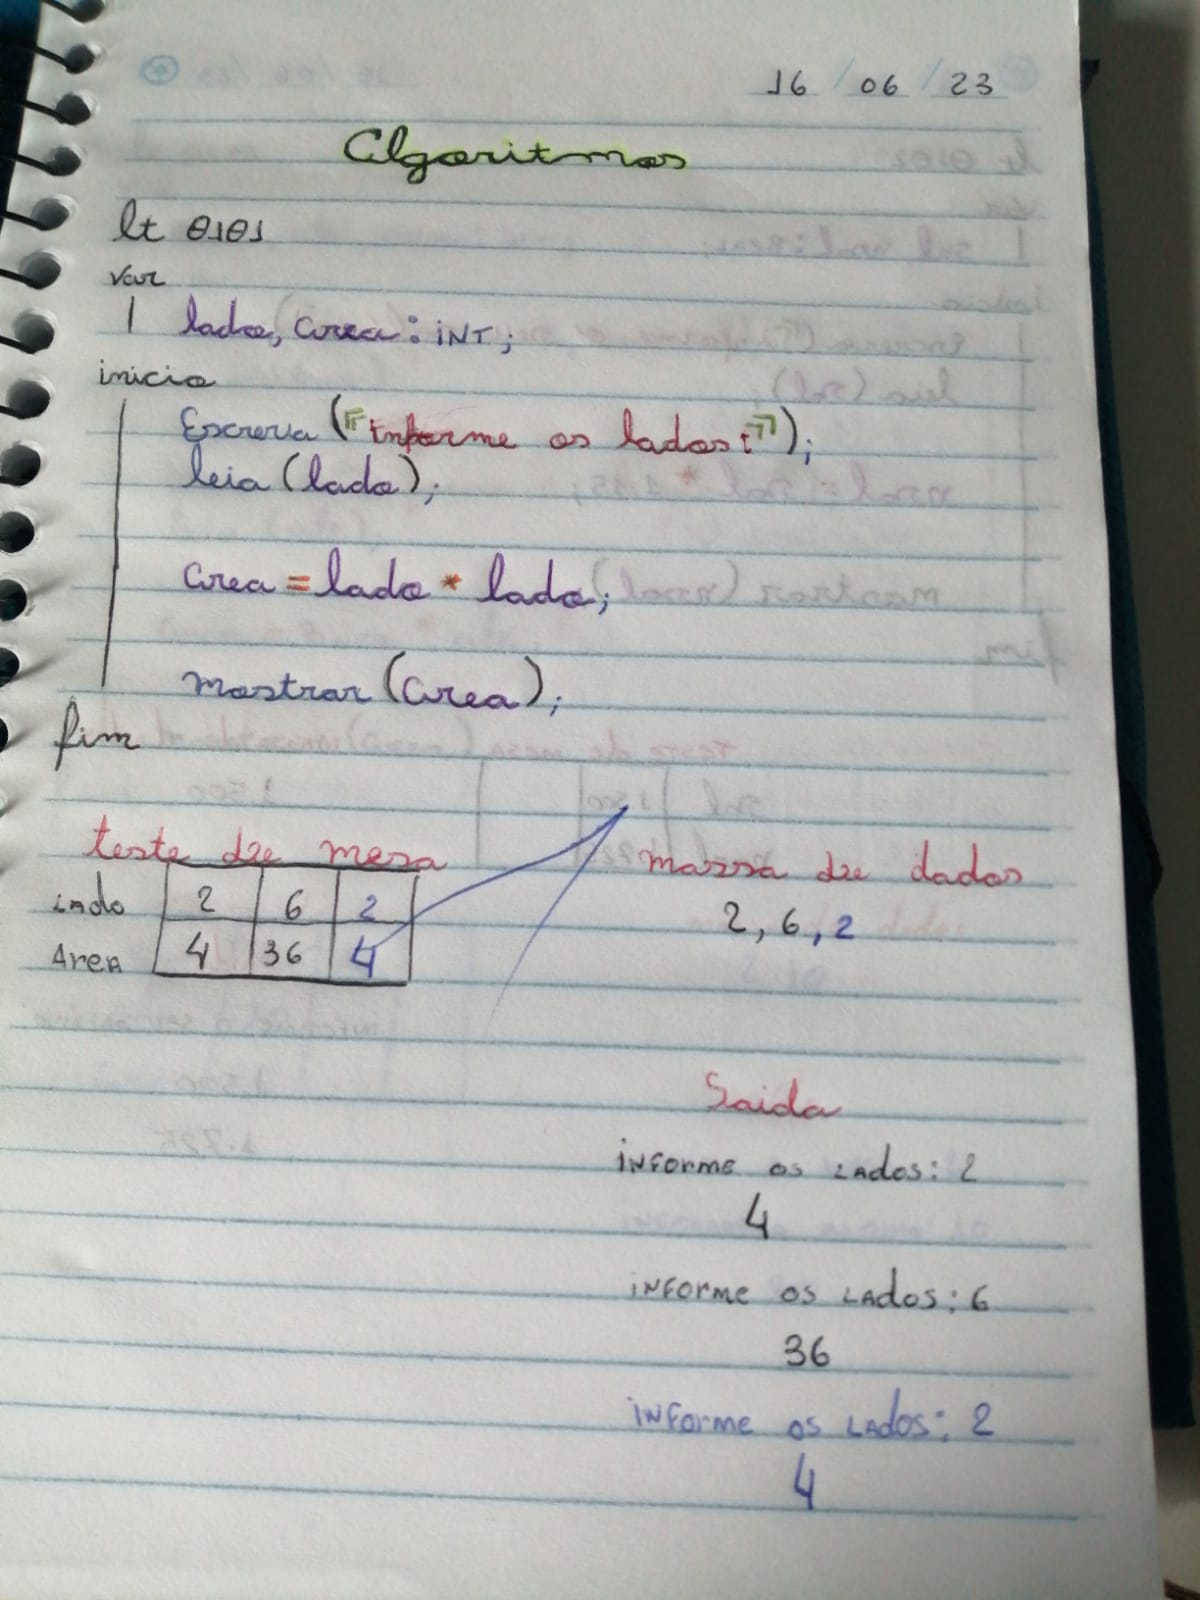 16 / 06 / 23
Algoritmos
lt 0101
var
lado, area : iNT ;
inicio
Escreva ("informe os lados:");
leia (lado);
area = lado * lado;
mostrar (area);
fim
teste de mesa
Lado 2 6 2
Area 4 36 4
massa de dados
2, 6, 2
Saida
iNForme os Lados: 2
4
iNForme os Lados: 6
36
iNForme os Lados: 2
4